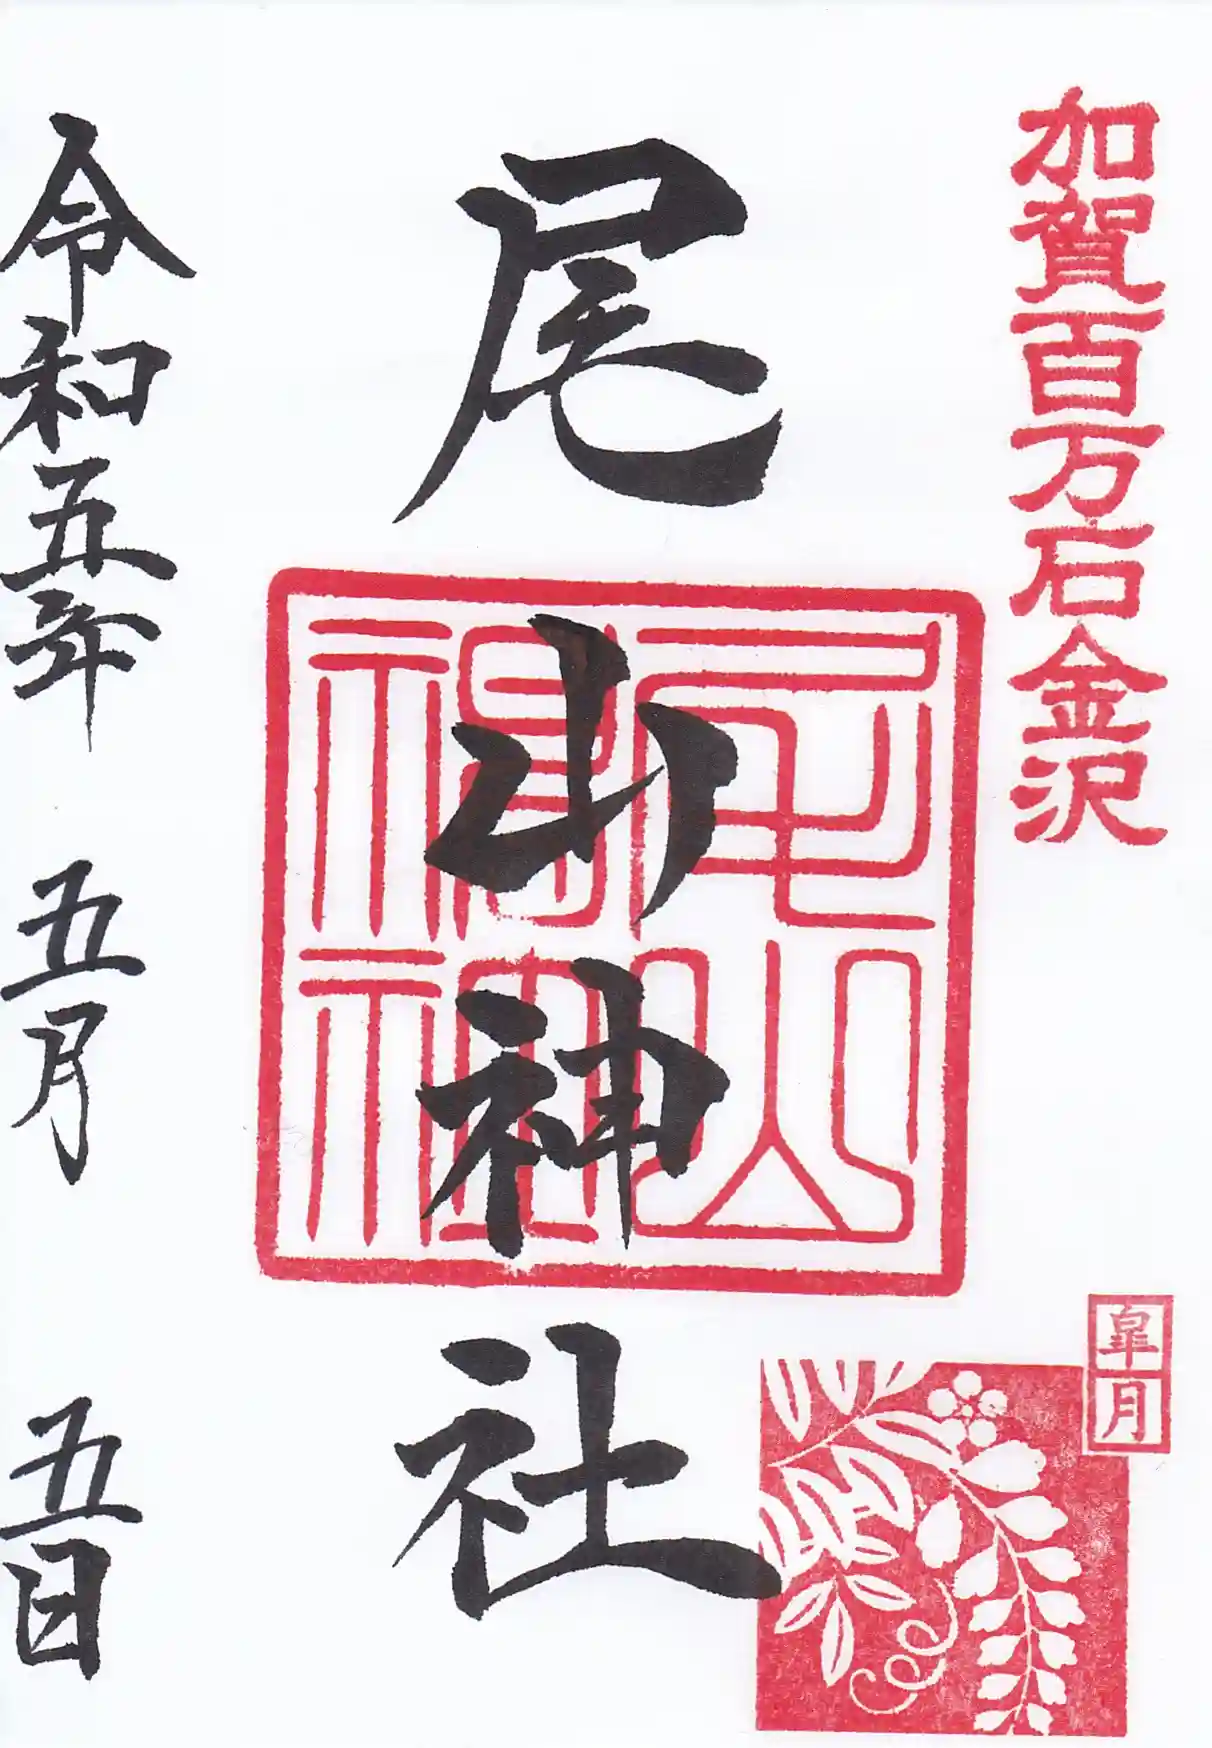 加賀百万石金沢
皐月
尾山神社
尾山神社
令和五年 五月 五日